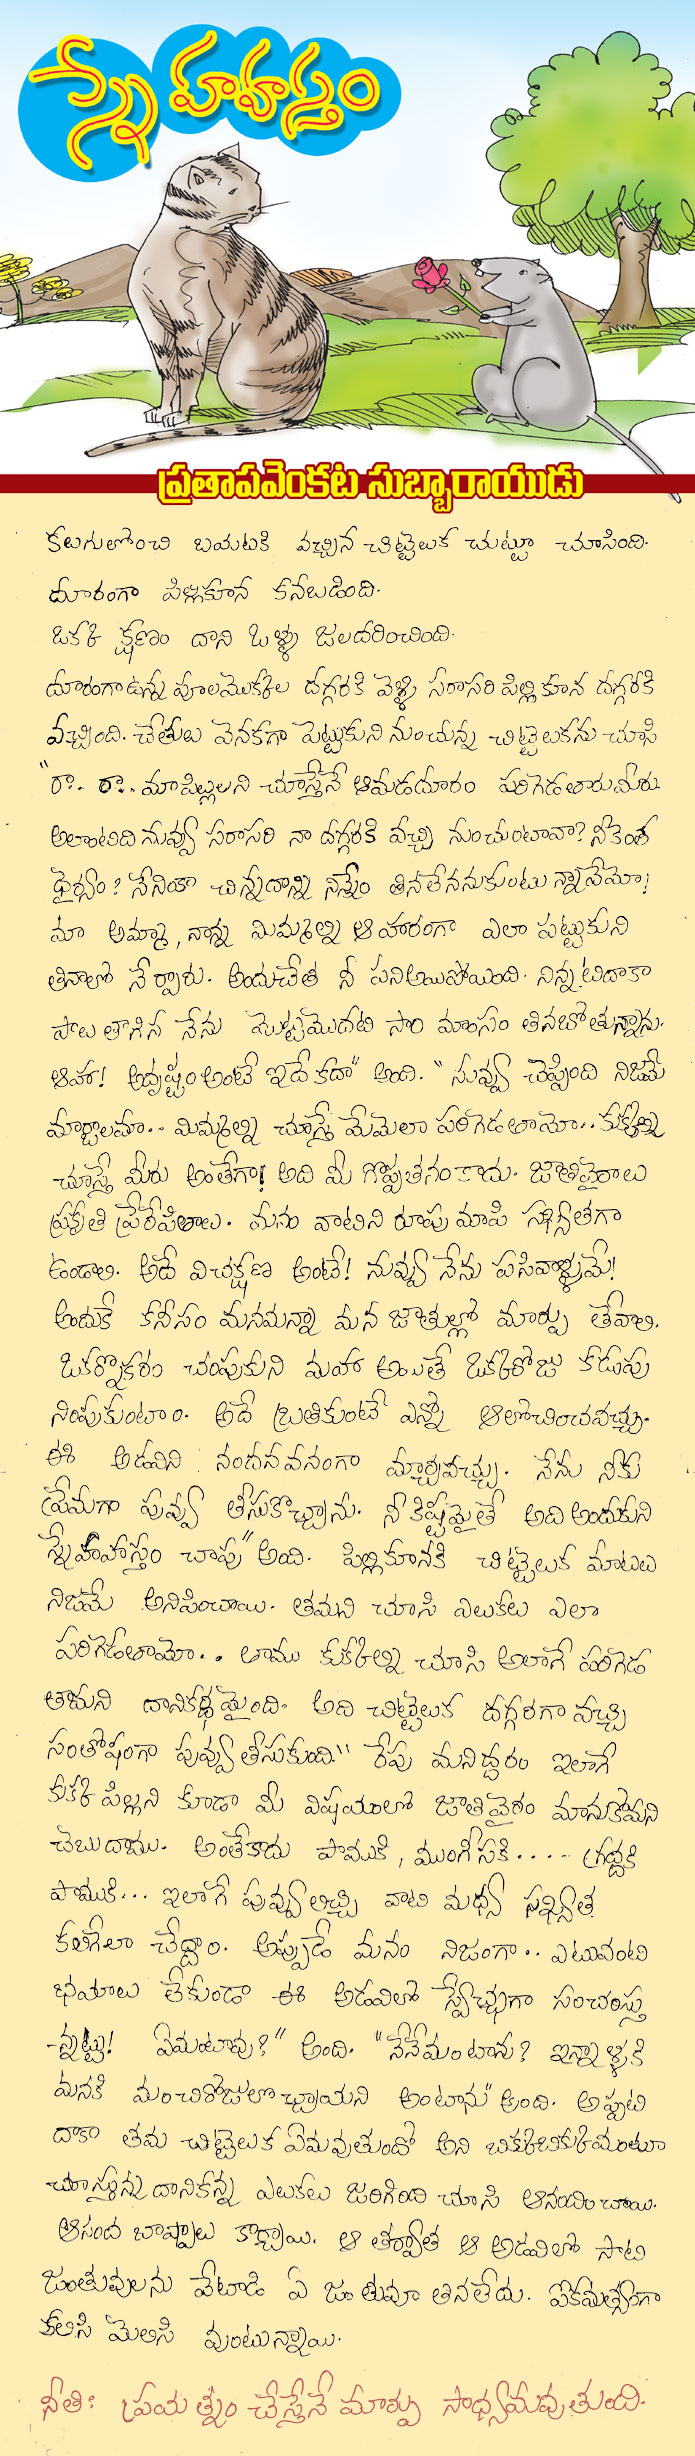 స్నేహహస్తం
ప్రతాపవెంకట సుబ్బారాయుడు
కలుగులోంచి బయటికి వచ్చిన చిట్టెలుక చుట్టూ చూసింది.
దూరంగా పిల్లికూన కనబడింది.
ఒక్క క్షణం దాని ఒళ్ళు జలదరించింది.
దూరంగా ఉన్న పూలమొక్కల దగ్గరకి వెళ్ళి సరాసరి పిల్లి కూన దగ్గరకి
వచ్చింది. చేతులు వెనకగా పెట్టుకుని నుంచున్న చిట్టెలుకను చూసి
"రా.. రా.. మా పిల్లులని చూస్తేనే ఆమడదూరం పరిగెడతారు మీరు.
అలాంటిది నువ్వు సరాసరి నా దగ్గరకి వచ్చి నుంచుంటావా? నీకెంత
ధైర్యం? నేనింకా చిన్నదాన్ని నిన్నేం తినలేననుకుంటున్నావేమో!
మా అమ్మా, నాన్న మిమ్మల్ని ఆహారంగా ఎలా పట్టుకుని
తినాలో నేర్పారు. అందుచేత నీ పని అయిపోయింది. నిన్నటిదాకా
పాలు తాగిన నేను మొట్టమొదటి సారి మాంసం తినబోతున్నాను.
ఆహా! అదృష్టం అంటే ఇదే కదా" అంది. "నువ్వు చెప్పింది నిజమే
మార్జాలమా.. మిమ్మల్ని చూస్తే మేమెలా పరిగెడతామో.. కుక్కల్ని
చూస్తే మీరు అంతేగా! అది మీ గొప్పతనం కాదు. జాతివైరాలు
ప్రకృతి ప్రేరేపితాలు. మనం వాటిని రూపు మాపి సఖ్యతగా
ఉండాలి. అదే విచక్షణ అంటే! నువ్వు నేను పసివాళ్ళమే!
అందుకే కనీసం మనమన్నా మన జాతుల్లో మార్పు తేవాలి.
ఒకర్నొకరం చంపుకుని మహా అయితే ఒక్కరోజు కడుపు
నింపుకుంటాం. అదే బ్రతికుంటే ఎన్నో ఆలోచించవచ్చు.
ఈ అడవిని నందనవనంగా మార్చవచ్చు. నేను నీకు
ప్రేమగా పువ్వు తీసుకొచ్చాను. నీ కిష్టమైతే అది అందుకుని
స్నేహహస్తం చాపు" అంది. పిల్లికూనకి చిట్టెలుక మాటలు
నిజమే అనిపించాయి. తమని చూసి ఎలుకలు ఎలా
పరిగెడతాయో.. తాము కుక్కల్ని చూసి అలాగే పరిగెడ
తామని దానికర్థమైంది. అది చిట్టెలుక దగ్గరగా వచ్చి
సంతోషంగా పువ్వు తీసుకుంది. "రేపు మనిద్దరం ఇలాగే
కుక్క పిల్లని కూడా మీ విషయంలో జాతివైరం మానుకోమని
చెబుదాము. అంతేకాదు పాముకి, ముంగిసకి..... గ్రద్దకి
పాముకి... ఇలాగే పువ్వులిచ్చి వాటి మధ్య సఖ్యత
కలిగేలా చేద్దాం. అప్పుడే మనం నిజంగా.. ఎటువంటి
భయాలు లేకుండా ఈ అడవిలో స్వేచ్ఛగా సంచరిస్తు
-న్నట్టు! ఏమంటావు?" అంది. "నేనేమంటాను? ఇన్నాళ్ళకి
మనకి మంచిరోజులొచ్చాయని అంటాను" అంది. అప్పటి
దాకా తమ చిట్టెలుక ఏమవుతుందో అని బిక్కుబిక్కుమంటూ
చూస్తున్న దానికన్న ఎలుకలు జరిగింది చూసి ఆనందించాయి.
ఆనంద బాష్పాలు కార్చాయి. ఆ తర్వాత ఆ అడవిలో సాటి
జంతువులను వేటాడి ఏ జంతువూ తినలేదు. ఐకమత్యంగా
కలిసి మెలిసి వుంటున్నాయి.
నీతి: ప్రయత్నం చేస్తేనే మార్పు సాధ్యమవుతుంది.